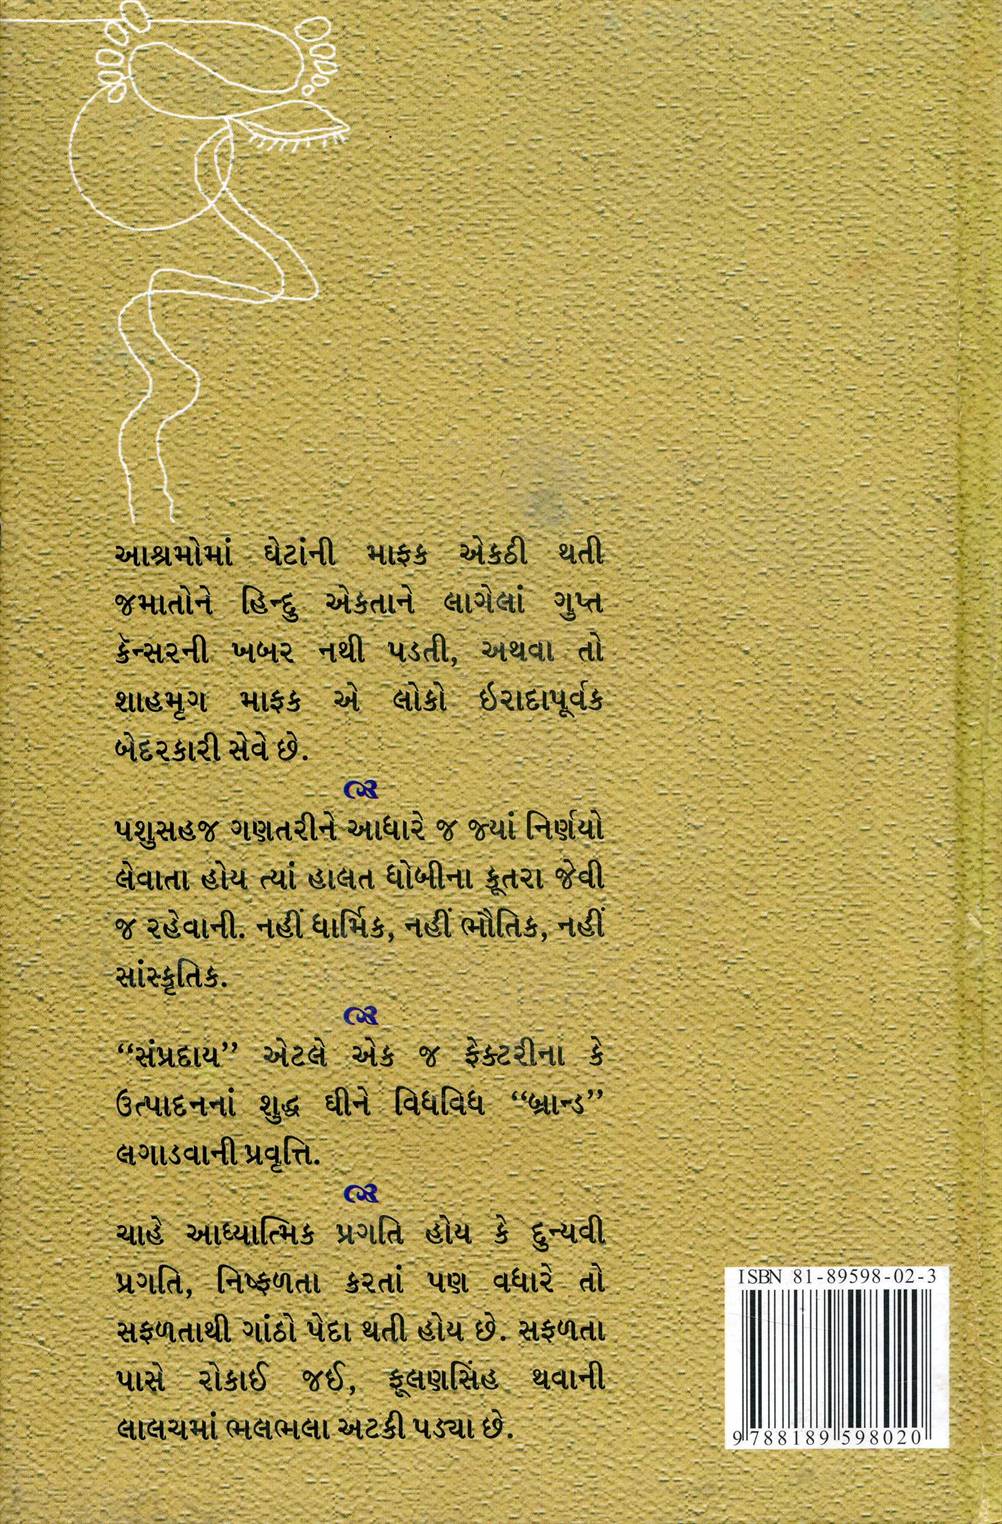 આશ્રમોમાં ઘેટાંની માફક એકઠી થતી
જમાતોને હિન્દુ એકતાને લાગેલાં ગુપ્ત
કૅન્સરની ખબર નથી પડતી, અથવા તો
શાહમૃગ માફક એ લોકો ઇરાદાપૂર્વક
બેદરકારી સેવે છે.
પશુસહજ ગણતરીને આધારે જ જ્યાં નિર્ણયો
લેવાતા હોય ત્યાં હાલત ધોબીના કૂતરા જેવી
જ રહેવાની. નહીં ધાર્મિક, નહીં ભૌતિક, નહીં
સાંસ્કૃતિક.
“સંપ્રદાય” એટલે એક જ ફેક્ટરીના કે
ઉત્પાદનનાં શુદ્ધ ઘીને વિધવિધ “બ્રાન્ડ”
લગાડવાની પ્રવૃત્તિ.
ચાહે આધ્યાત્મિક પ્રગતિ હોય કે દુન્યવી
પ્રગતિ, નિષ્ફળતા કરતાં પણ વધારે તો
સફળતાથી ગાંઠો પેદા થતી હોય છે. સફળતા
પાસે રોકાઈ જઈ, ફૂલણસિંહ થવાની
લાલચમાં ભલભલા અટકી પડ્યા છે.
ISBN 81-89598-02-3
9 788189 598020